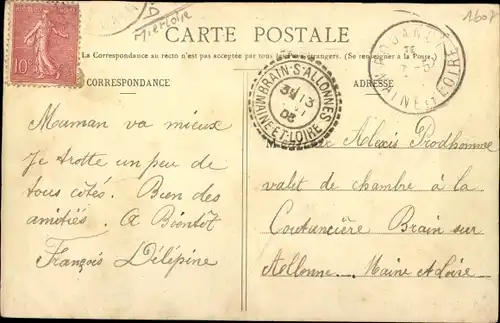 1608
Mⁿᵉ et Loire
CARTE POSTALE
La Correspondance au recto n'est pas acceptée par tous les pays étrangers. (Se renseigner à la Poste).
CORRESPONDANCE
ADRESSE
10c
BRAIN-S-ALLONNES
13
08
MAINE-ET-LOIRE
MAINE ET LOIRE
Maman va mieux
Je trotte un peu de
tous côtés. Bien des
amitiés. A Bientôt
François Délépine
Alexis Prodhomme
valet de chambre à la
Coutancière Brain sur
Aellonne. Maine & Loire